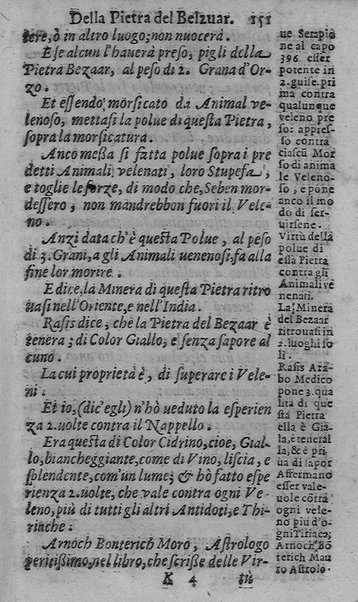 Della Pietra del Belzuar. 151
tere, ò in altro luogo; non nuocerà.
E se alcun l'hauerà preso, pigli della
Pietra Bezaar, al peso di 2. Grana d'Or-
zo.
Et essendo morsicato da Animal ve-
lenoso, mettasi la polue di questa Pietra,
sopra la morsicatura.
Anco messa sì fatta polue sopra i pre
detti Animali velenati, loro Stupefa,
e toglie le forze, di modo che, Seben mor-
dessero, non mandrebbon fuori il Vele-
no.
Anzi data ch'è questa Polue, al peso
di 3. Grani, a gli Animali uenenosi, fa alla
fine lor morire.
E dice, la Minera di questa Pietra ritro
uasi nell'Oriente, e nell'India.
Rasis dice, che la Pietra del Bezaar è
tenera; di Color Giallo, e senza sapore al
cuno.
La cui proprietà è, di superare i Vele
ni.
Et io, (dic'egli) n'hò ueduto la esperien
za 2. uolte contra il Nappello.
Era questa di Color Cidrino, cioe, Gial
lo, biancheggiante, come di Vino, liscia, e
splendente, com'un lume; & hò fatto espe
rienza 2. uolte, che vale contro ogni Ve-
leno, più di tutti gli altri Antidoti, e Thi-
riache.
Arnoch Bonterich Moro, Astrologo
peritissimo, nel libro, che scrisse delle Vir-
K 4 tù
ue Serapio
ne al capo
396 esser
potente in
2. guise. pri
ma contra
qualunque
veleno pre
so: appres-
so contra
ciascũ Mor
so di anima
le Veleno-
so, e pone
anco il mo
do di ser-
uirsene.
Virtù della
polue di
essa Pietra
contra gli
Animali ve
nenati.
La Minera
del Bezaar
ritrouasi in
2. luoghi so
li.
Rasis Ara-
bo Medico
pone; la qua
lità di que
sta Pietra
ella è Gial-
la, e teneral
la, & è pri
ua di sapor
Affermano
esser vale-
uole cõtra
ogni velen
o più d'o
gni Tiriaca;
Arnoch Bõ
terich Mau
ro Astrolo-